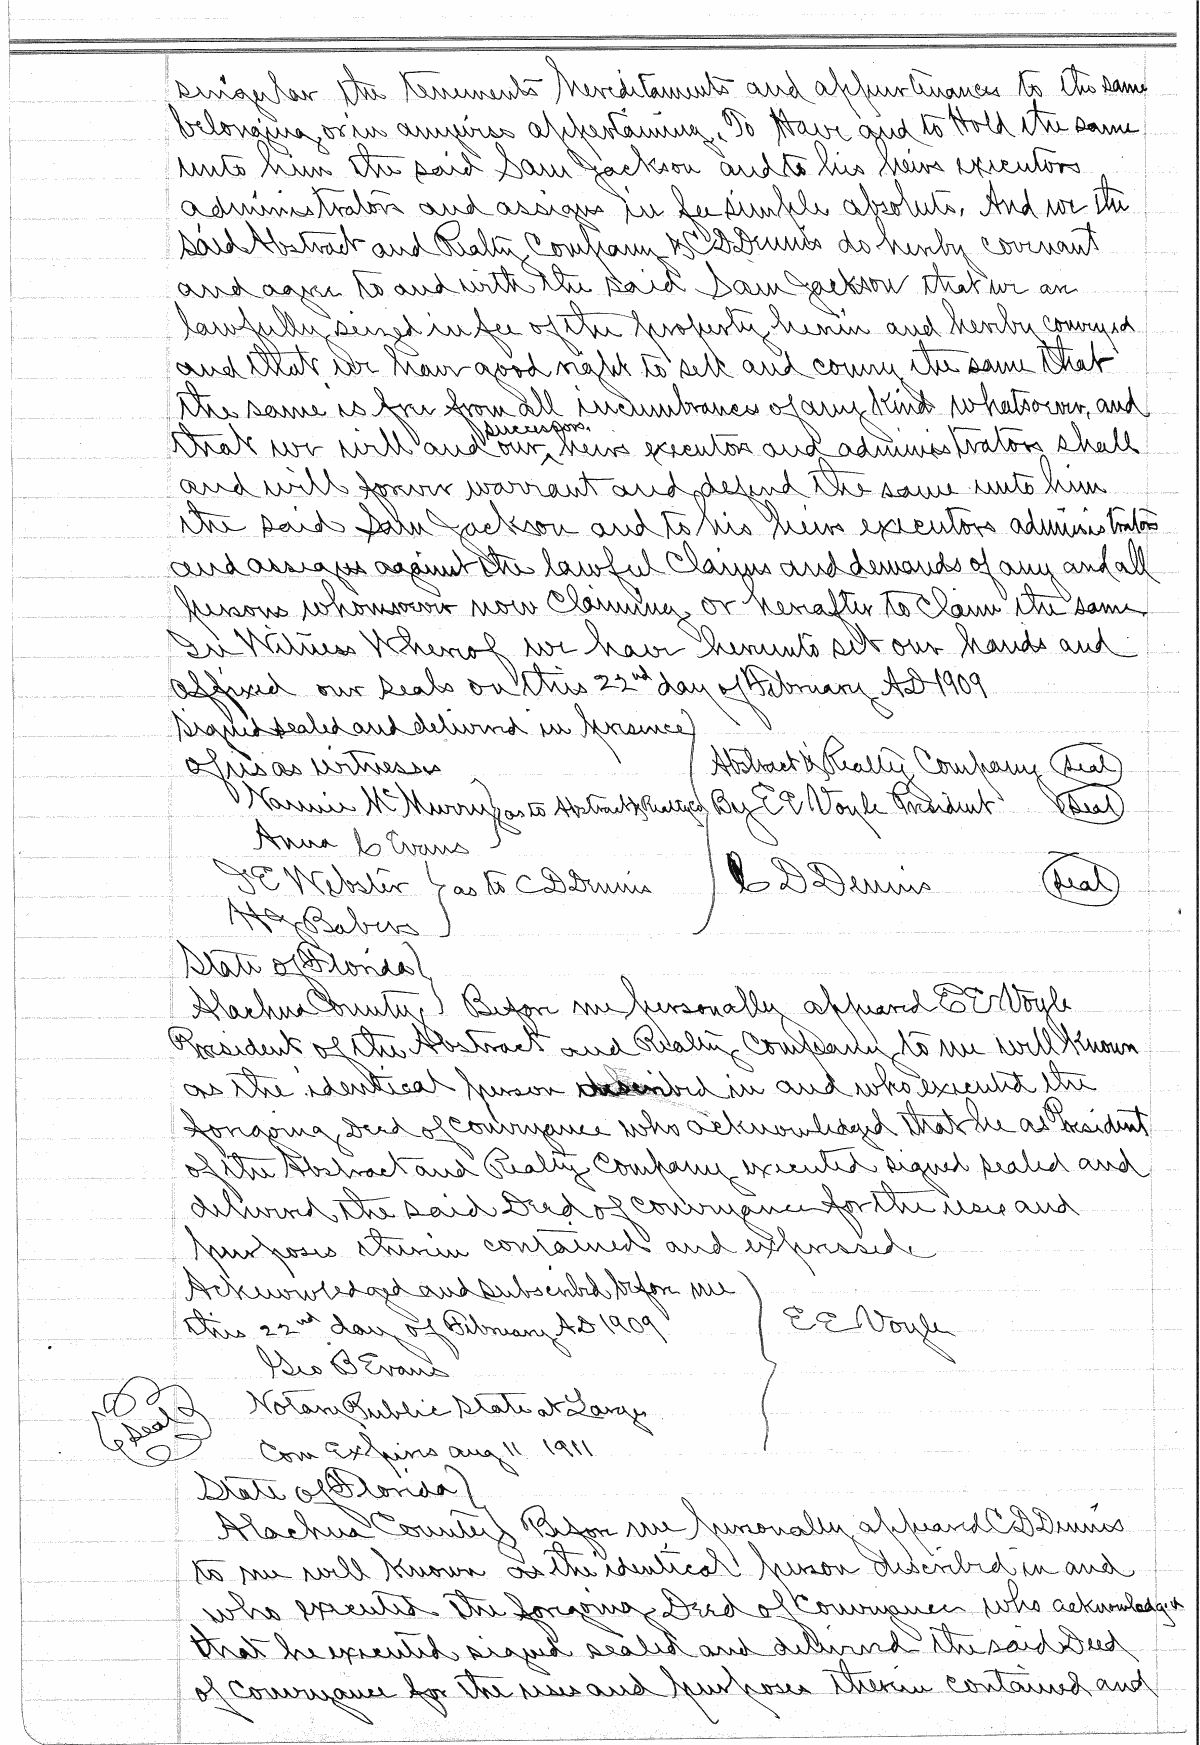 singular the tenements hereditaments and appurtenances to the same
belonging or in anywise appertaining. To Have and to Hold the same
unto him the said Sam Jackson and to his heirs executors
administrators and assigns in fee simple absolute. And we the
said Abstract and Realty Company & C D Dennis do hereby covenant
and agree to and with the said Sam Jackson that we are
lawfully seized in fee of the property herein and hereby conveyed
and that we have good right to sell and convey the same that
the same is free from all incumbrances of any kind whatsoever, and
successors,
that we will and our heirs executors and administrators shall
and will forever warrant and defend the same unto him
the said Sam Jackson and to his heirs executors administrators
and assigns against the lawful claims and demands of any and all
persons whomsoever now claiming or hereafter to claim the same
In Witness Whereof we have hereunto set our hands and
affixed our seals on this 22nd day of February A D 1909
Signed sealed and delivered in presence
of us as witnesses Abstract & Realty Company (Seal)
Nannie McMurry as to Abstract & Realty Co By E E Voyle President (Seal)
Anna C Evans
J E Webster as to C D Dennis C D Dennis (Seal)
H G Babers
State of Florida
Alachua County Before me personally appeared E E Voyle
President of the Abstract and Realty Company to me well known
as the identical person described in and who executed the
foregoing Deed of Conveyance who acknowledged that he as President
of the Abstract and Realty Company executed signed sealed and
delivered the said Deed of Conveyance for the uses and
purposes therein contained and expressed
Acknowledged and subscribed before me
this 22nd day of February A D 1909 E E Voyle
Geo B Evans
Seal Notary Public State at Large
Com Expires Aug 11 1911
State of Florida
Alachua County Before me personally appeared C D Dennis
to me well known as the identical person described in and
who executed the foregoing Deed of Conveyance who acknowledged
that he executed signed sealed and delivered the said Deed
of Conveyance for the uses and purposes therein contained and